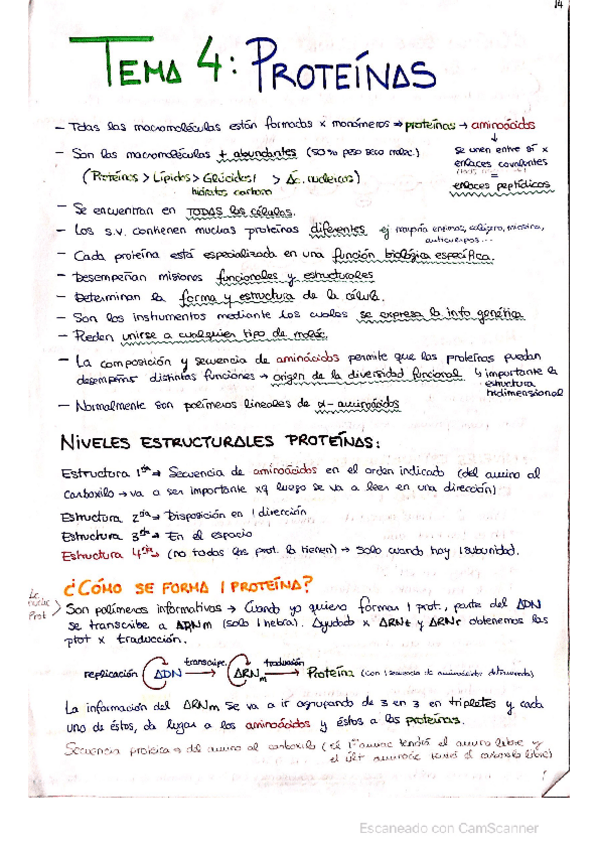 14
TEMA 4: PROTEÍNAS
- Todas las macromoléculas están formadas x monómeros → proteínas → aminoácidos
↓
se unen entre sí x
enlaces covalentes
=
enlaces peptídicos
- Son las macromoléculas + abundantes (50% peso seco molec.)
(Proteínas > Lípidos > Glúcidos > Ác. nucleicos)
hidratos carbono
- Se encuentran en TODAS las células.
- Los s.v. contienen muchas proteínas diferentes ej mayoría enzimas, colágeno, miosina,
anticuerpos...
- Cada proteína está especializada en una función biológica específica.
- Desempeñan misiones funcionales y estructurales
- Determinan la forma y estructura de la célula.
- Son los instrumentos mediante los cuales se expresa la info genética
- Pueden unirse a cualquier tipo de moléc.
- La composición y secuencia de aminoácidos permite que las proteínas puedan
desempeñar distintas funciones → origen de la diversidad funcional ↳ importante la
estructura
tridimensional
- Normalmente son polímeros lineales de α-aminoácidos
NIVELES ESTRUCTURALES PROTEÍNAS:
Estructura 1ria → Secuencia de aminoácidos en el orden indicado (del amino al
carboxilo → va a ser importante xq luego se va a leer en una dirección)
Estructura 2ria → Disposición en 1 dirección
Estructura 3ria → En el espacio
Estructura 4ria → (no todas las prot. la tienen) → solo cuando hay 1 subunidad.
¿CÓMO SE FORMA 1 PROTEÍNA?
Prot
Son polímeros informativos → Cuando yo quiero formar 1 prot., parte del ADN
se transcribe a ARNm (solo 1 hebra). Ayudado x ARNt y ARNr obtenemos las
prot x traducción.
replicación ADN → transcripc. ARNm → traducción Proteína (con 1 secuencia de aminoácidos determinada)
La información del ARNm se va a ir agrupando de 3 en 3 en tripletes y cada
uno de éstos, da lugar a los aminoácidos y éstos a las proteínas.
Secuencia proteica → del amino al carboxilo (el 1er aminoác tendrá el amino libre y
el últ aminoác tendrá el carboxilo libre)
Escaneado con CamScanner